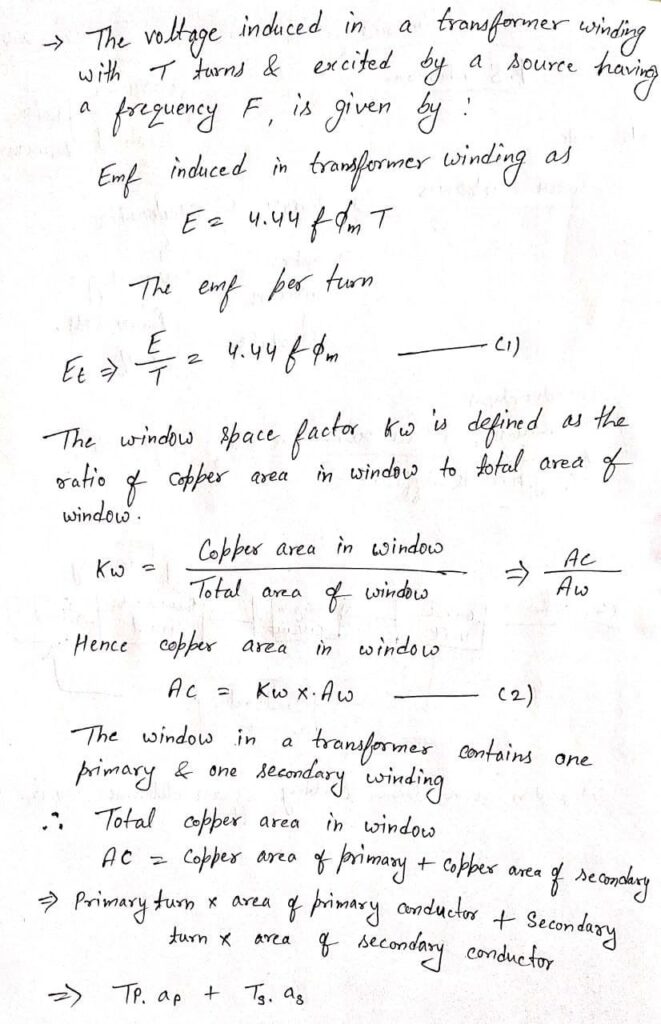 → The voltage induced in a transformer winding
with T turns & excited by a source having
a frequency F, is given by :
Emf induced in transformer winding as
E = 4.44 f ϕm T
The emf per turn
Et ⇒ E/T = 4.44 f ϕm —— (1)
The window space factor Kw is defined as the
ratio of copper area in window to total area of
window.
Kw = Copper area in window / Total area of window ⇒ Ac / Aw
Hence copper area in window
AC = Kw x. Aw —— (2)
The window in a transformer contains one
primary & one secondary winding
∴ Total copper area in window
AC = Copper area of primary + Copper area of secondary
⇒ Primary turn x area of primary conductor + Secondary
turn x area of secondary conductor
⇒ TP. ap + Ts. as